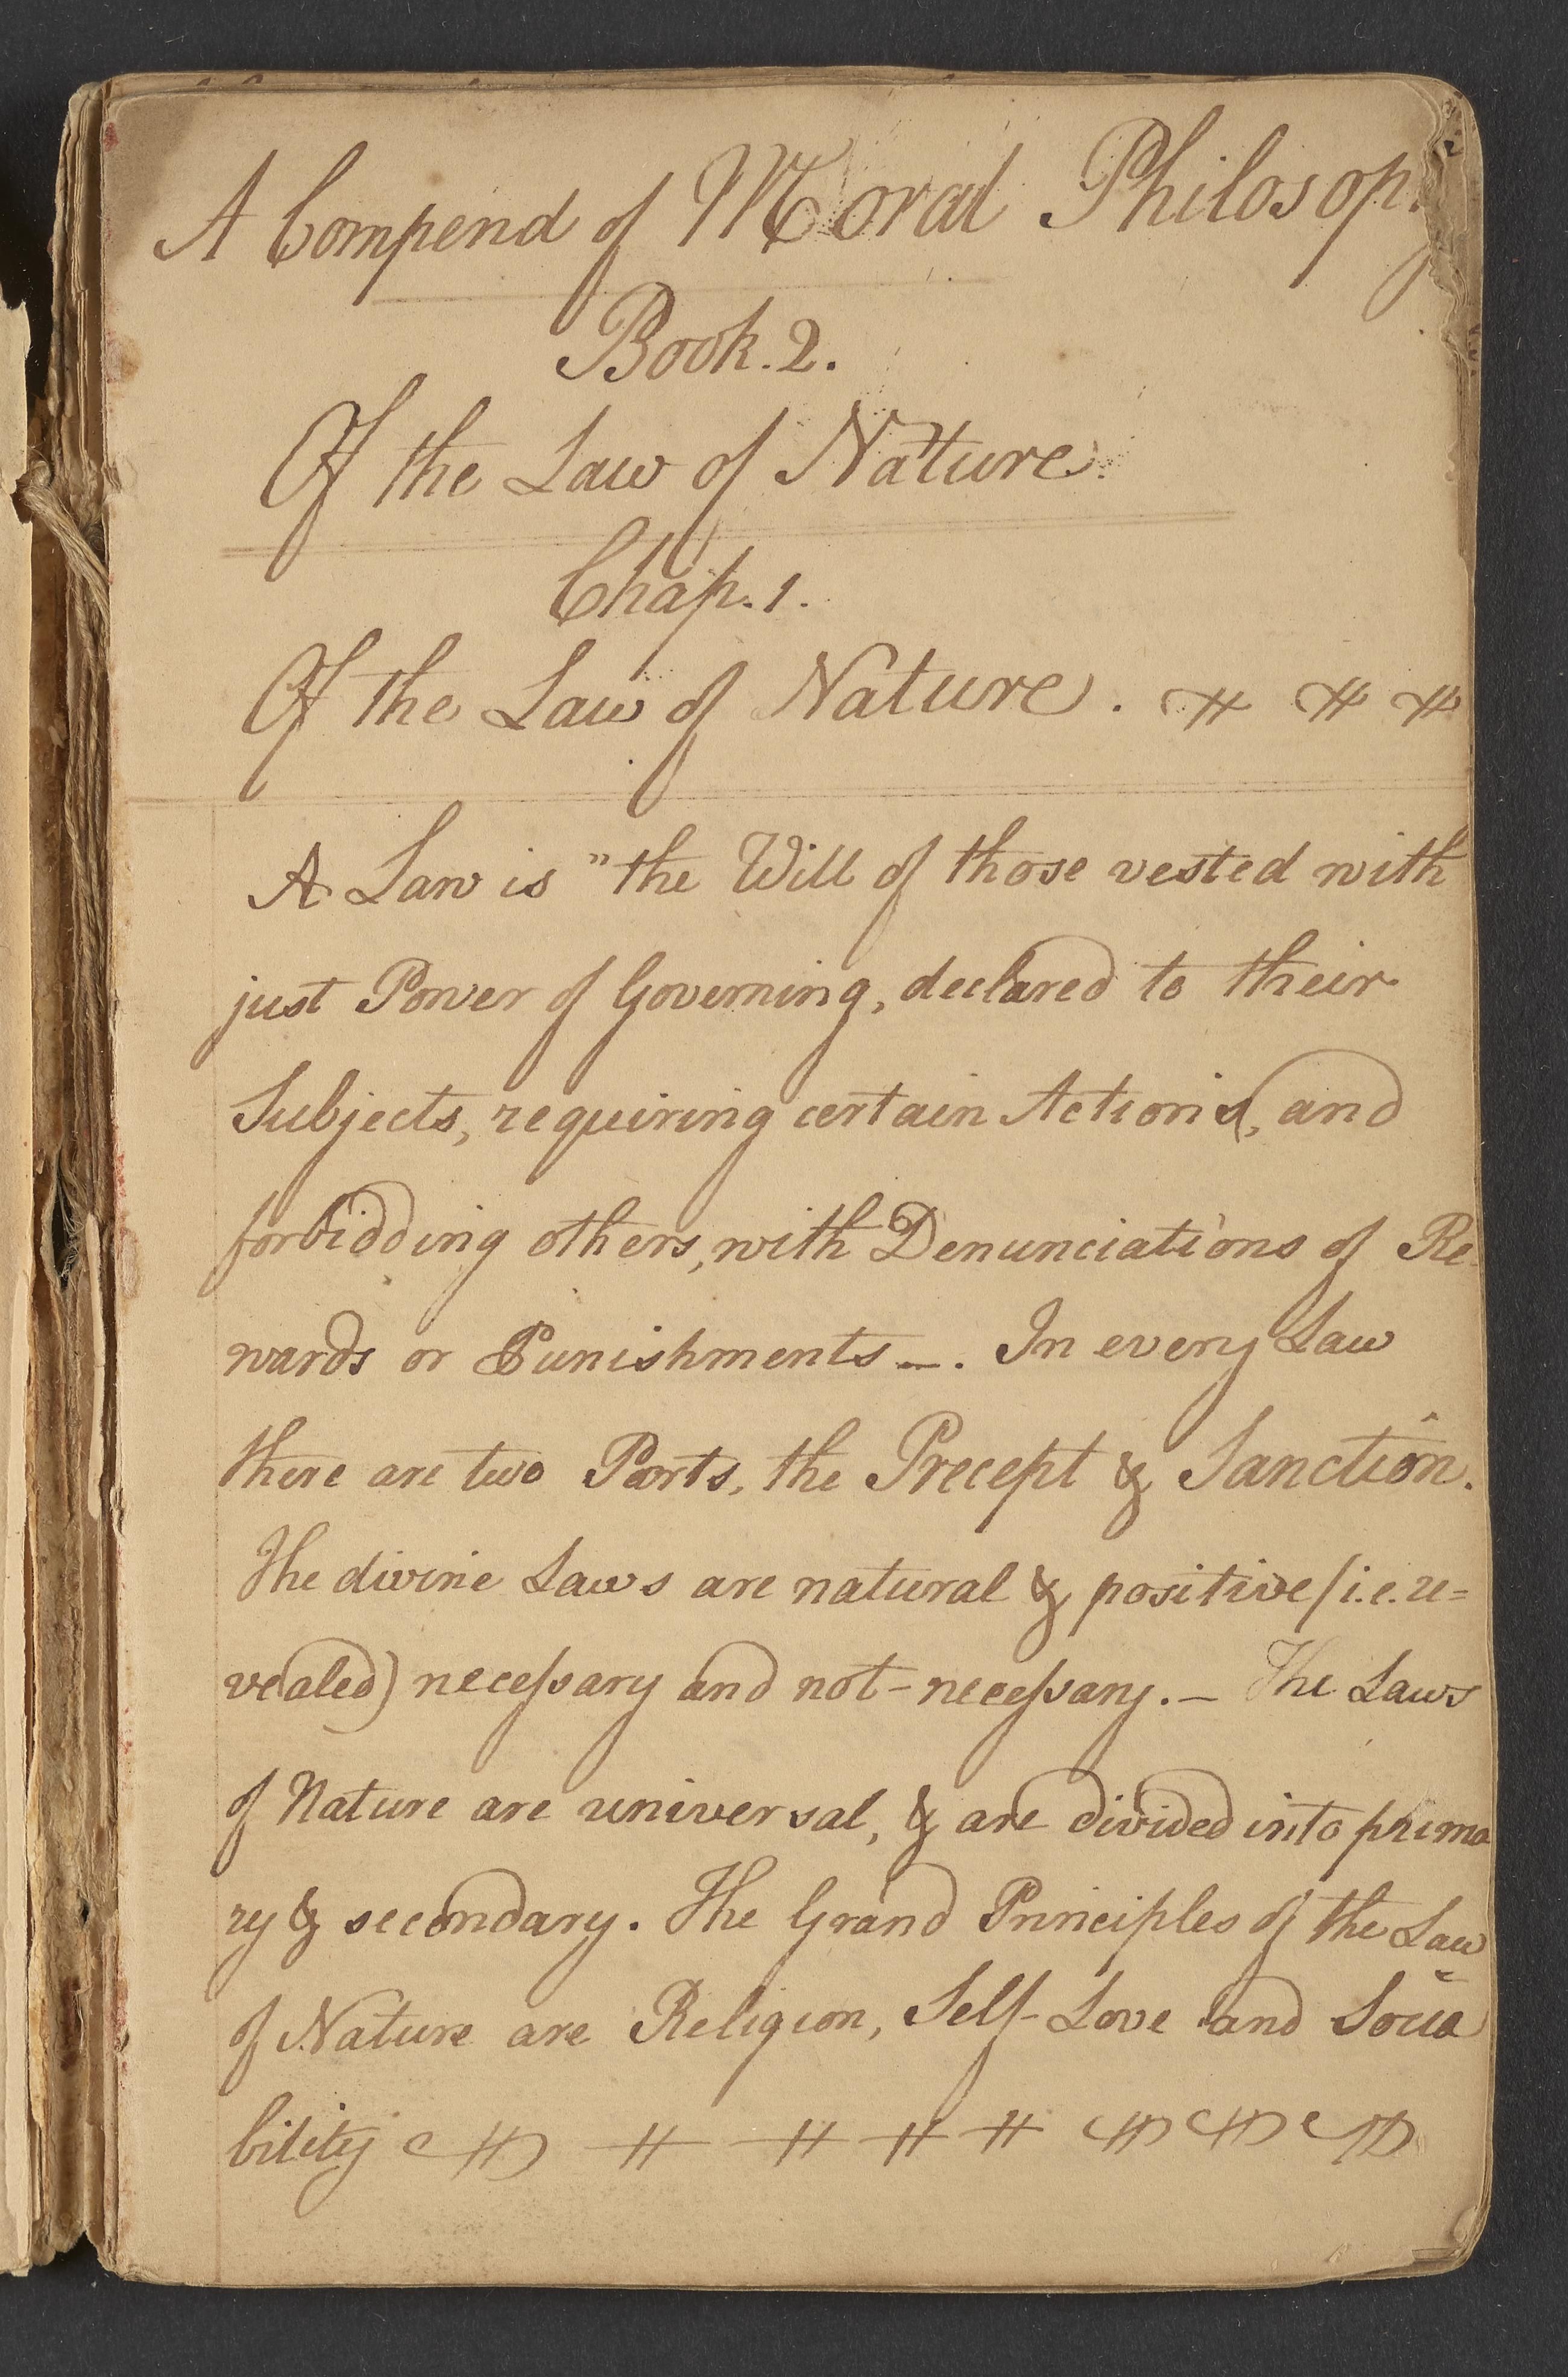 A Compend of Moral Philosop
Book. 2.
Of the Law of Nature.
Chap. 1.
Of the Law of Nature.
A Law is "the Will of those vested with
just Power of Governing, declared to their
Subjects, requiring certain Actions, and
forbidding others, with Denunciations of Re
wards or Punishments —. In every Law
there are two Parts, the Precept & Sanction.
The divine Laws are natural & positive (i.e. re=
vealed) necessary and not-necessary. — The Laws
of Nature are universal, & are divided into prima
ry & secondary. The Grand Principles of the Law
of Nature are Religion, Self-Love and Socia
bility